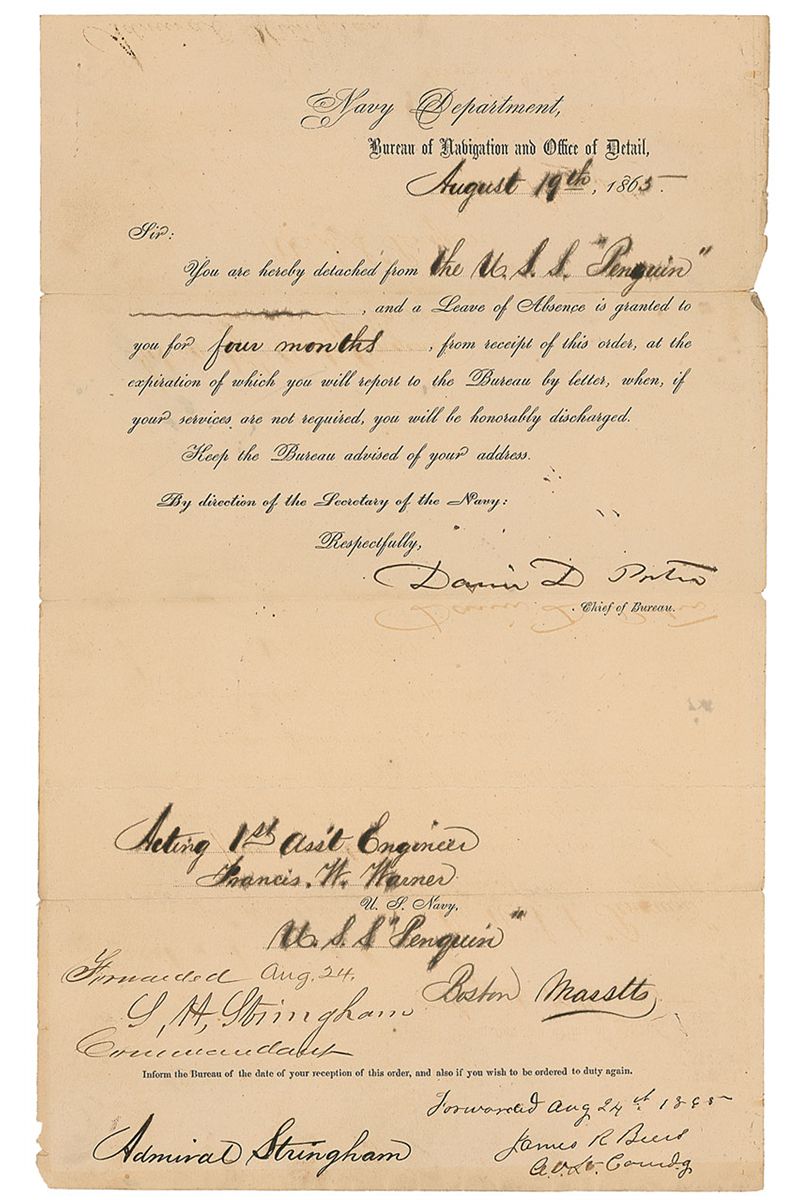 Navy Department,
Bureau of Navigation and Office of Detail,
August 19th, 1865.
Sir:
You are hereby detached from the U. S. S. "Penguin"
, and a Leave of Absence is granted to
you for four months , from receipt of this order, at the
expiration of which you will report to the Bureau by letter, when, if
your services are not required, you will be honorably discharged.
Keep the Bureau advised of your address.
By direction of the Secretary of the Navy:
Respectfully,
David D Porter
Chief of Bureau.
Acting 1st Ass't Engineer
Francis. W. Warner
U. S. Navy,
U. S. S "Penguin"
Forwarded Aug. 24.
Boston Masstts
S, H, Stringham
Commandant
Inform the Bureau of the date of your reception of this order, and also if you wish to be ordered to duty again.
Forwarded Aug 24th 1865
James R Beers
Admiral Stringham
Comdg